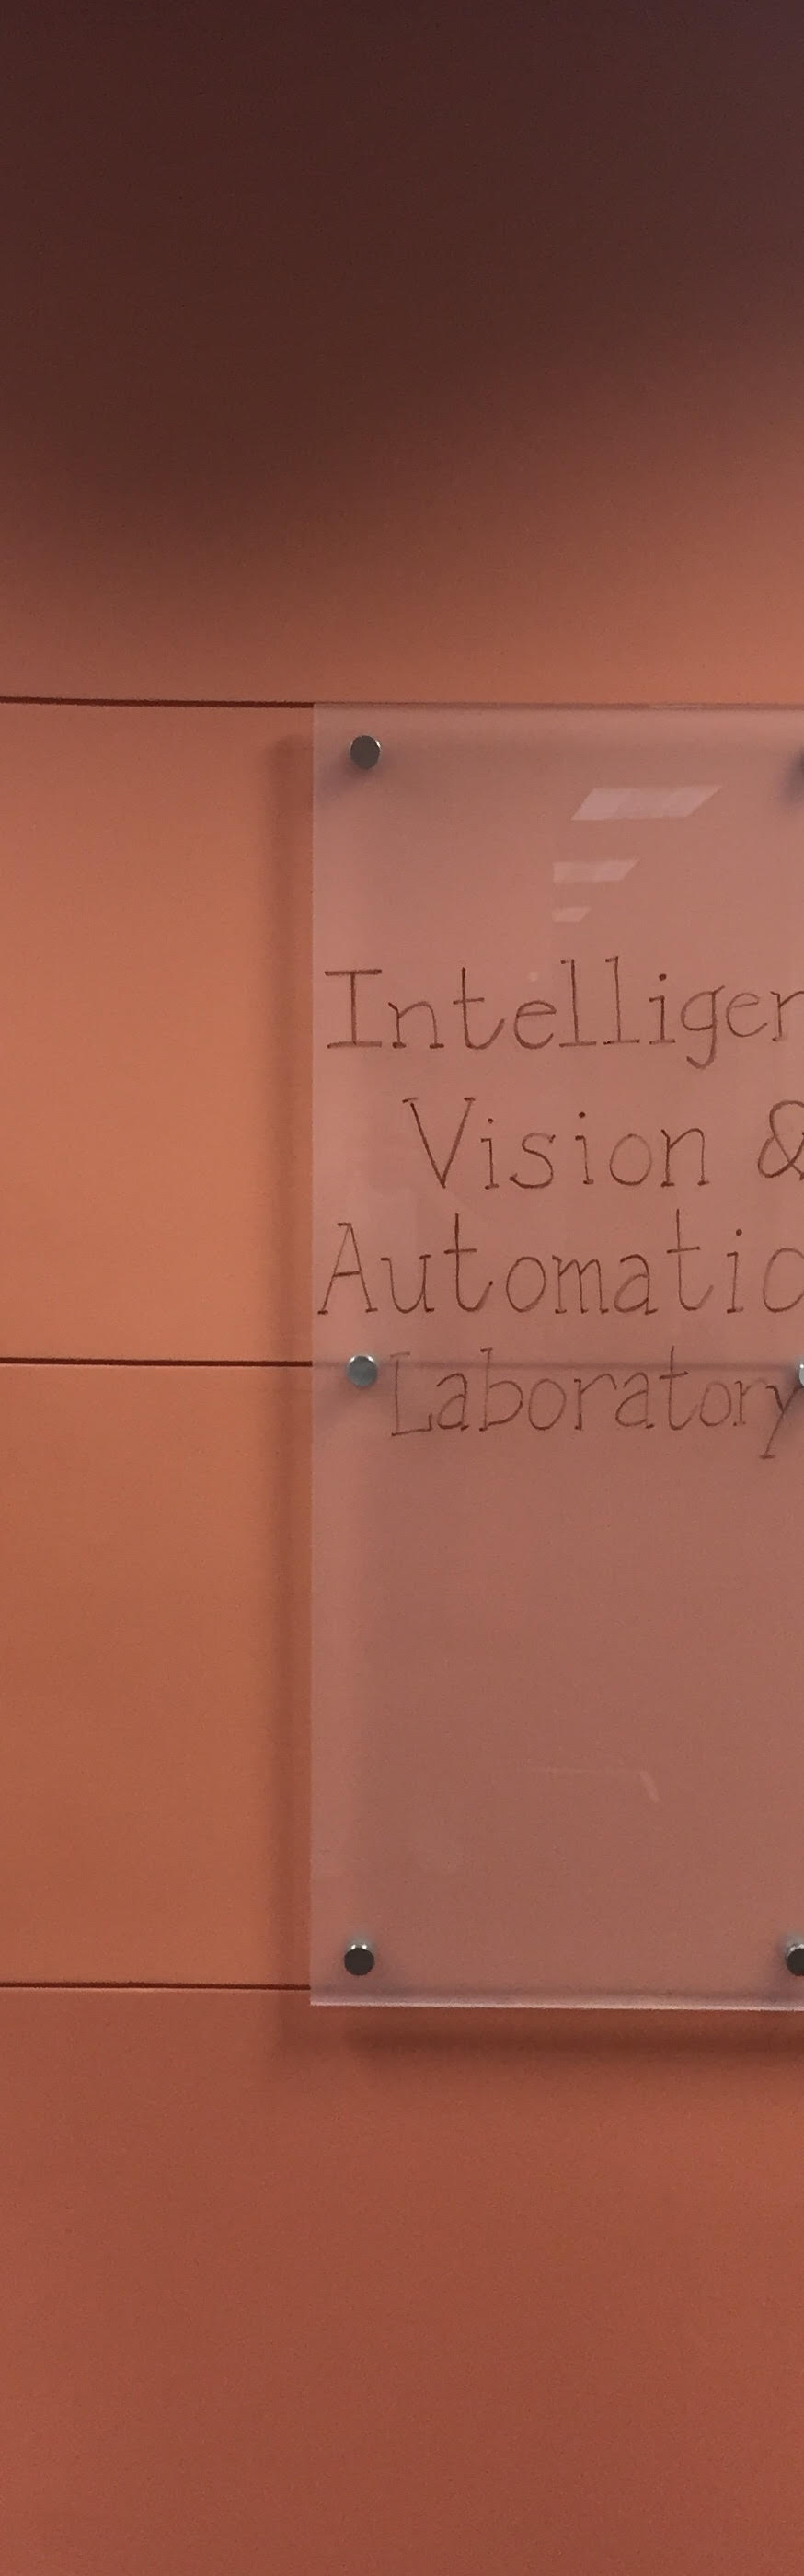 Intelliger
Vision &
Automatic
Laboratory